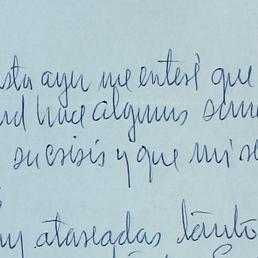 sta ayer me enteré que
hace algunos
su crisis y que mi
ataseadas tanto